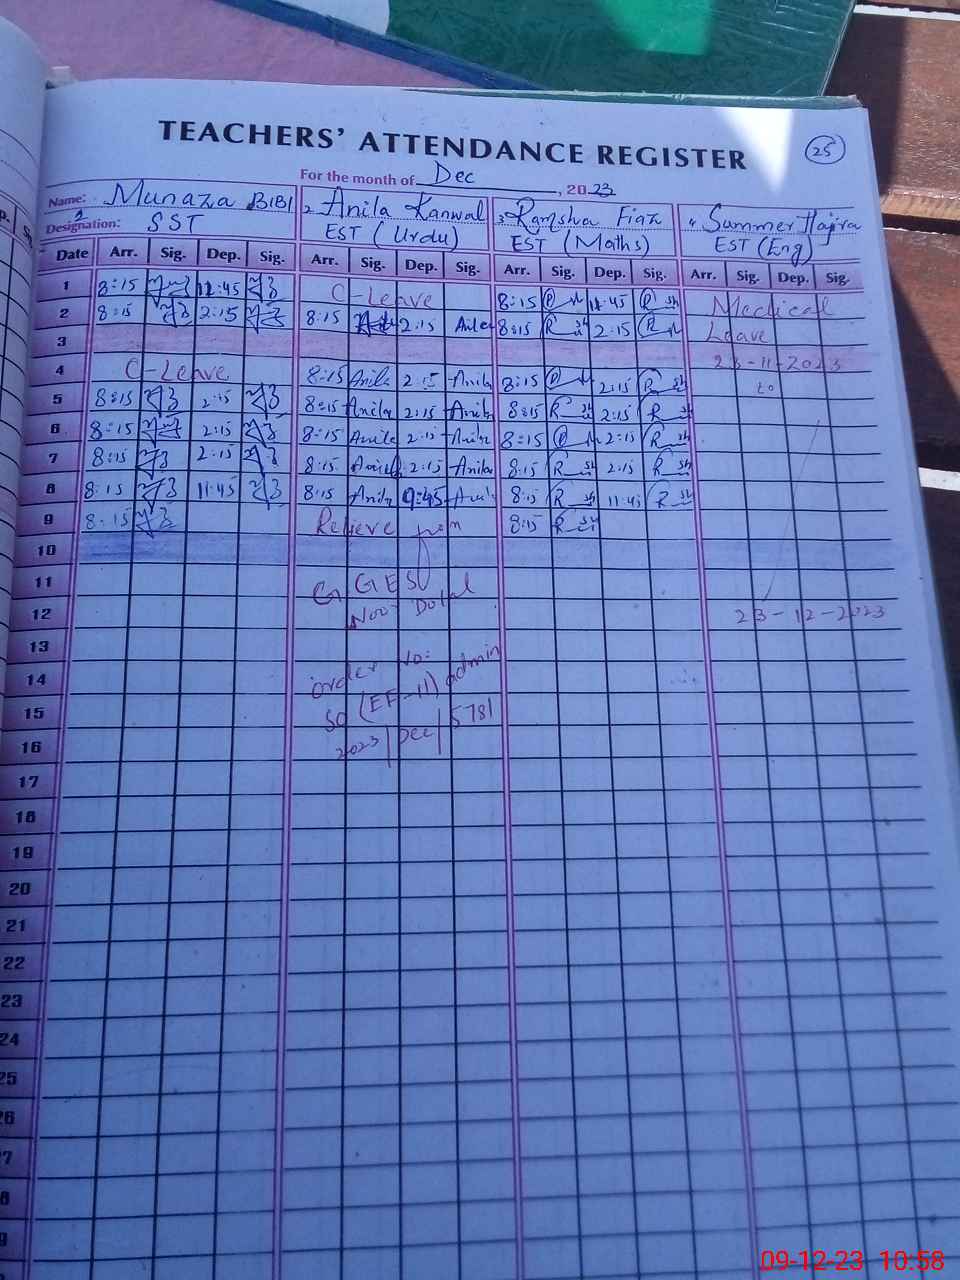 TEACHERS' ATTENDANCE REGISTER
25
For the month of Dec , 2023
Name: Munaza BIBI
Designation: SST
2 Anila Kanwal
EST (Urdu)
3 Ramsha Fiaz
EST (Maths)
4 Summer Hajira
EST (Eng)
Date Arr. Sig. Dep. Sig. Arr. Sig. Dep. Sig. Arr. Sig. Dep. Sig. Arr. Sig. Dep. Sig.
1 8:15 11:45 C-Leave 8:15 11:45 Medical
2 8:15 2:15 8:15 2:15 Anila 8:15 2:15 Leave
3 23-11-2023
4 C-Leave 8:15 Anila 2:15 Anila 8:15 2:15 to
5 8:15 2:15 8:15 Anila 2:15 Anila 8:15 2:15
6 8:15 2:15 8:15 Anila 2:15 Anila 8:15 2:15
7 8:15 2:15 8:15 Anila 2:15 Anila 8:15 2:15
8 8:15 11:45 8:15 Anila 9:45 Anila 8:15 11:45
9 8:15 Relieve from 8:15
10
11 GGES
12 Noor 23-12-2023
13
14 order No:
15 SO (EE-II) admin
16 2023/Dec/5781
17
18
19
20
21
22
23
24
25
26
09-12-23 10:58